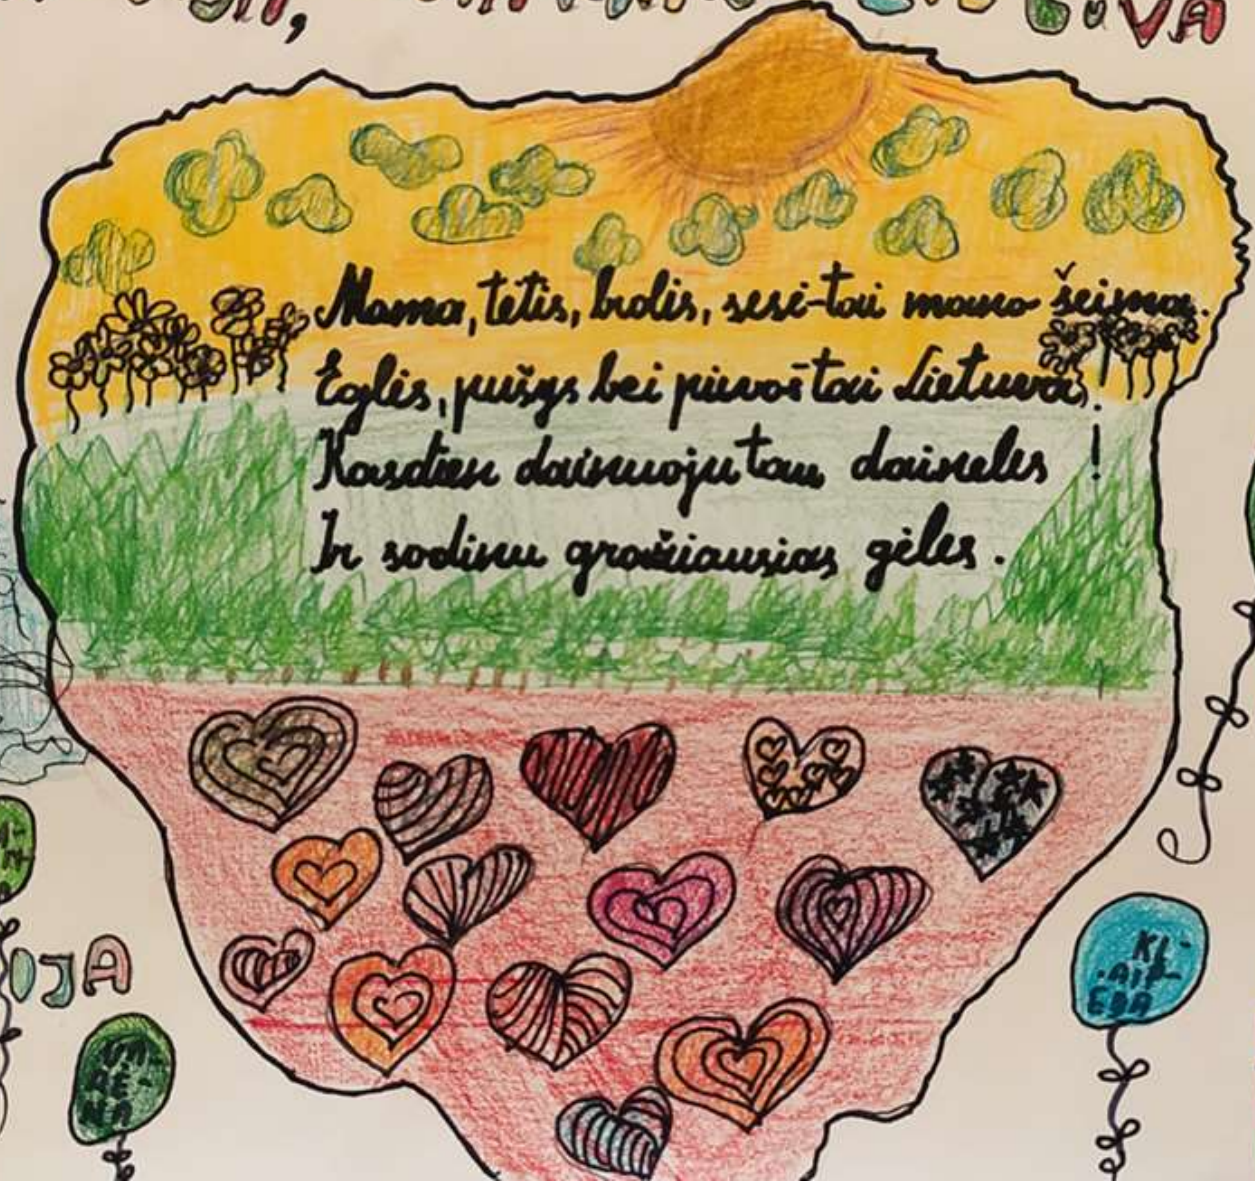 Mama, tėtis, brolis, sesė-tai mano šeima.
Eglės, pušys bei pievos tai Lietuva!
Kasdien dainuoju tau daineles !
Ir sodinu gražiausias gėles.
IJA
KL-
AIP-
EDA
VA-
RĖ-
NA